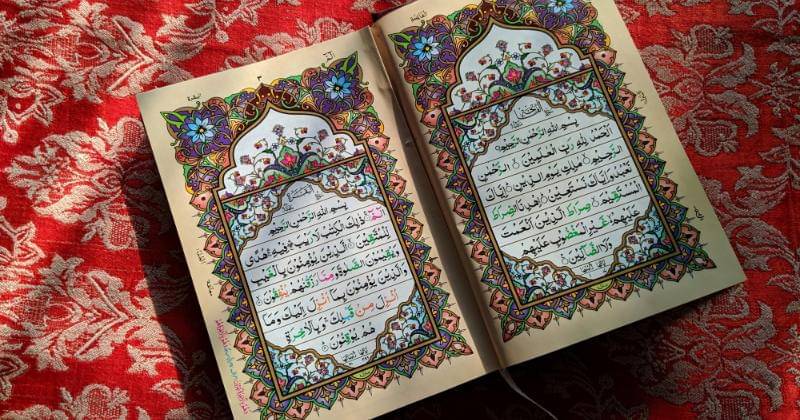 بِسْمِ اللهِ الرَّحْمٰنِ الرَّحِيْمِ
اَلْحَمْدُ لِلّٰهِ رَبِّ الْعٰلَمِيْنَ ۝ الرَّحْمٰنِ
الرَّحِيْمِ ۝ مٰلِكِ يَوْمِ الدِّيْنِ ۝ اِيَّاكَ
نَعْبُدُ وَاِيَّاكَ نَسْتَعِيْنُ ۝ اِهْدِنَا الصِّرَاطَ
الْمُسْتَقِيْمَ ۝ صِرَاطَ الَّذِيْنَ اَنْعَمْتَ
عَلَيْهِمْ غَيْرِ الْمَغْضُوْبِ عَلَيْهِمْ
وَلَا الضَّآلِّيْنَ ۝
٣
بِسْمِ اللهِ الرَّحْمٰنِ الرَّحِيْمِ
الٓمّٓ ۝ ذٰلِكَ الْكِتٰبُ لَا رَيْبَ فِيْهِ هُدًى
لِّلْمُتَّقِيْنَ ۝ الَّذِيْنَ يُؤْمِنُوْنَ بِالْغَيْبِ
وَيُقِيْمُوْنَ الصَّلٰوةَ وَمِمَّا رَزَقْنٰهُمْ يُنْفِقُوْنَ ۝
وَالَّذِيْنَ يُؤْمِنُوْنَ بِمَآ اُنْزِلَ اِلَيْكَ وَمَآ
اُنْزِلَ مِنْ قَبْلِكَ وَبِالْاٰخِرَةِ
هُمْ يُوْقِنُوْنَ ۝